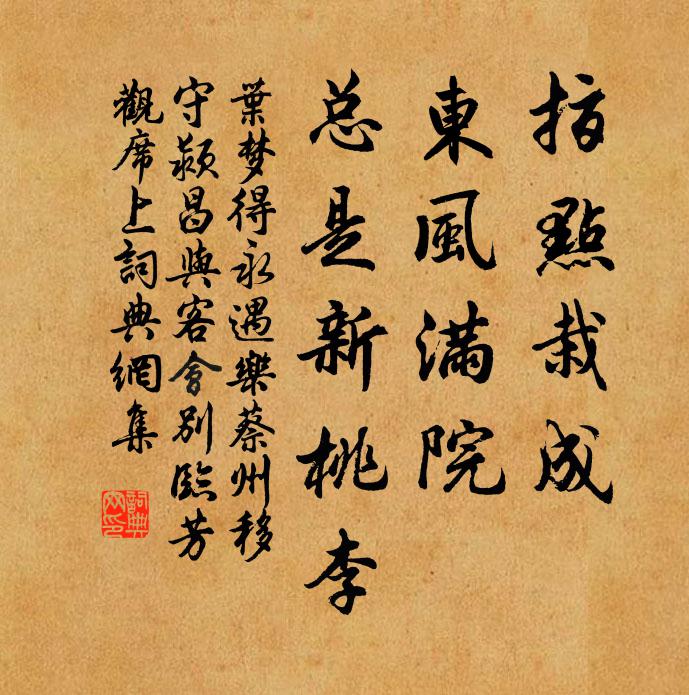 指點栽成
東風滿院
总是新桃李
葉梦得永遇樂蔡州移
守颍昌與客會別臨芳
觀席上詞典網集
詞典
网印